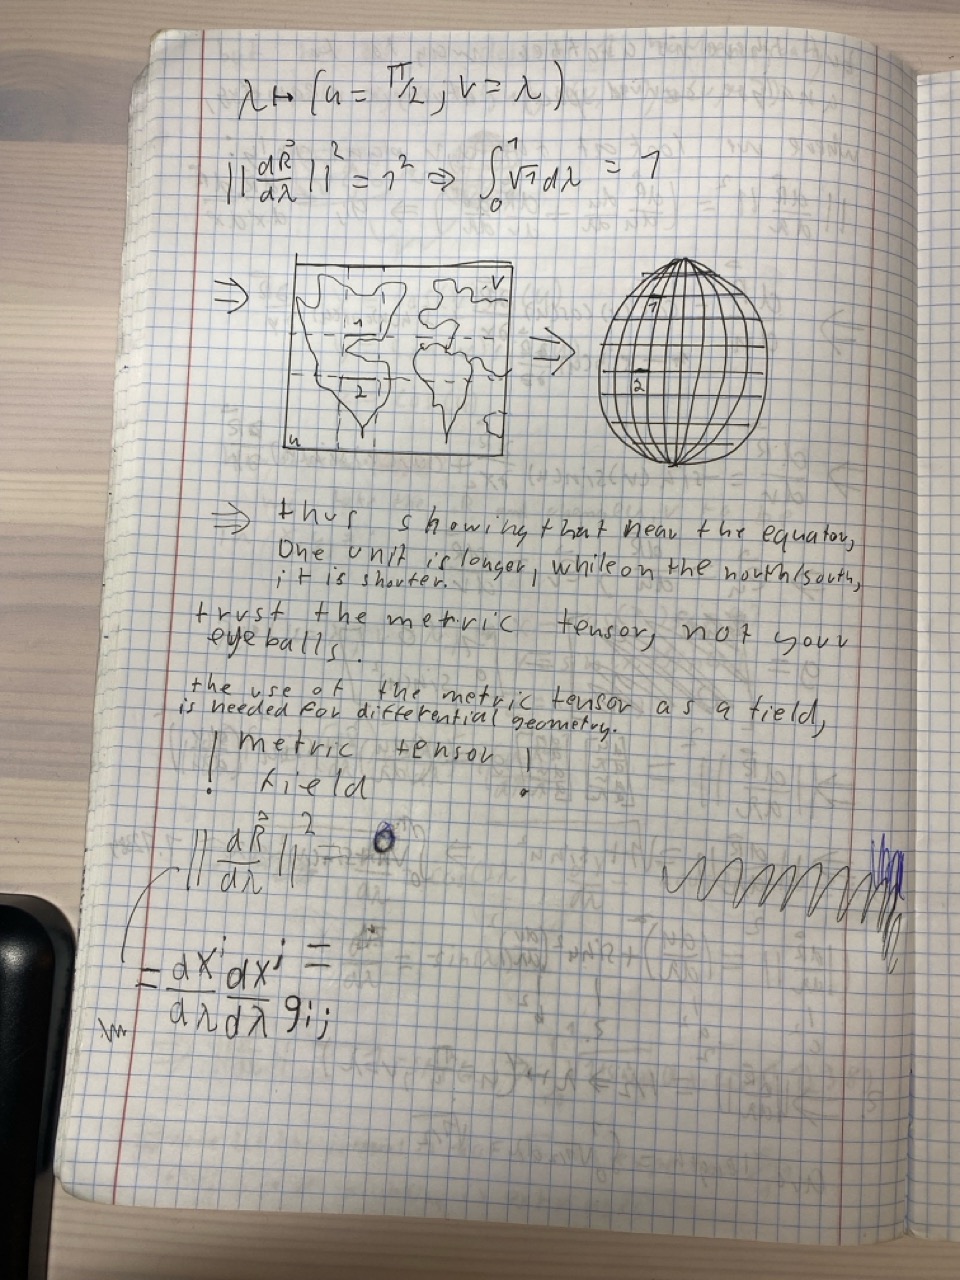 λ ↦ (u = π/2, v = λ)
||dR⃗/dλ||² = 1² ⇒ ∫₀¹ √1 dλ = 1
⇒ v 1 2 u ⇒ 1 2
⇒ thus showing that near the equator,
One unit is longer, while on the north/south,
it is shorter.
trust the metric tensor, not your
eyeballs.
the use of the metric tensor as a field,
is needed for differential geometry.
! metric tensor !
field
||dR⃗/dλ||² =
= dxⁱ/dλ dxʲ/dλ gᵢⱼ =